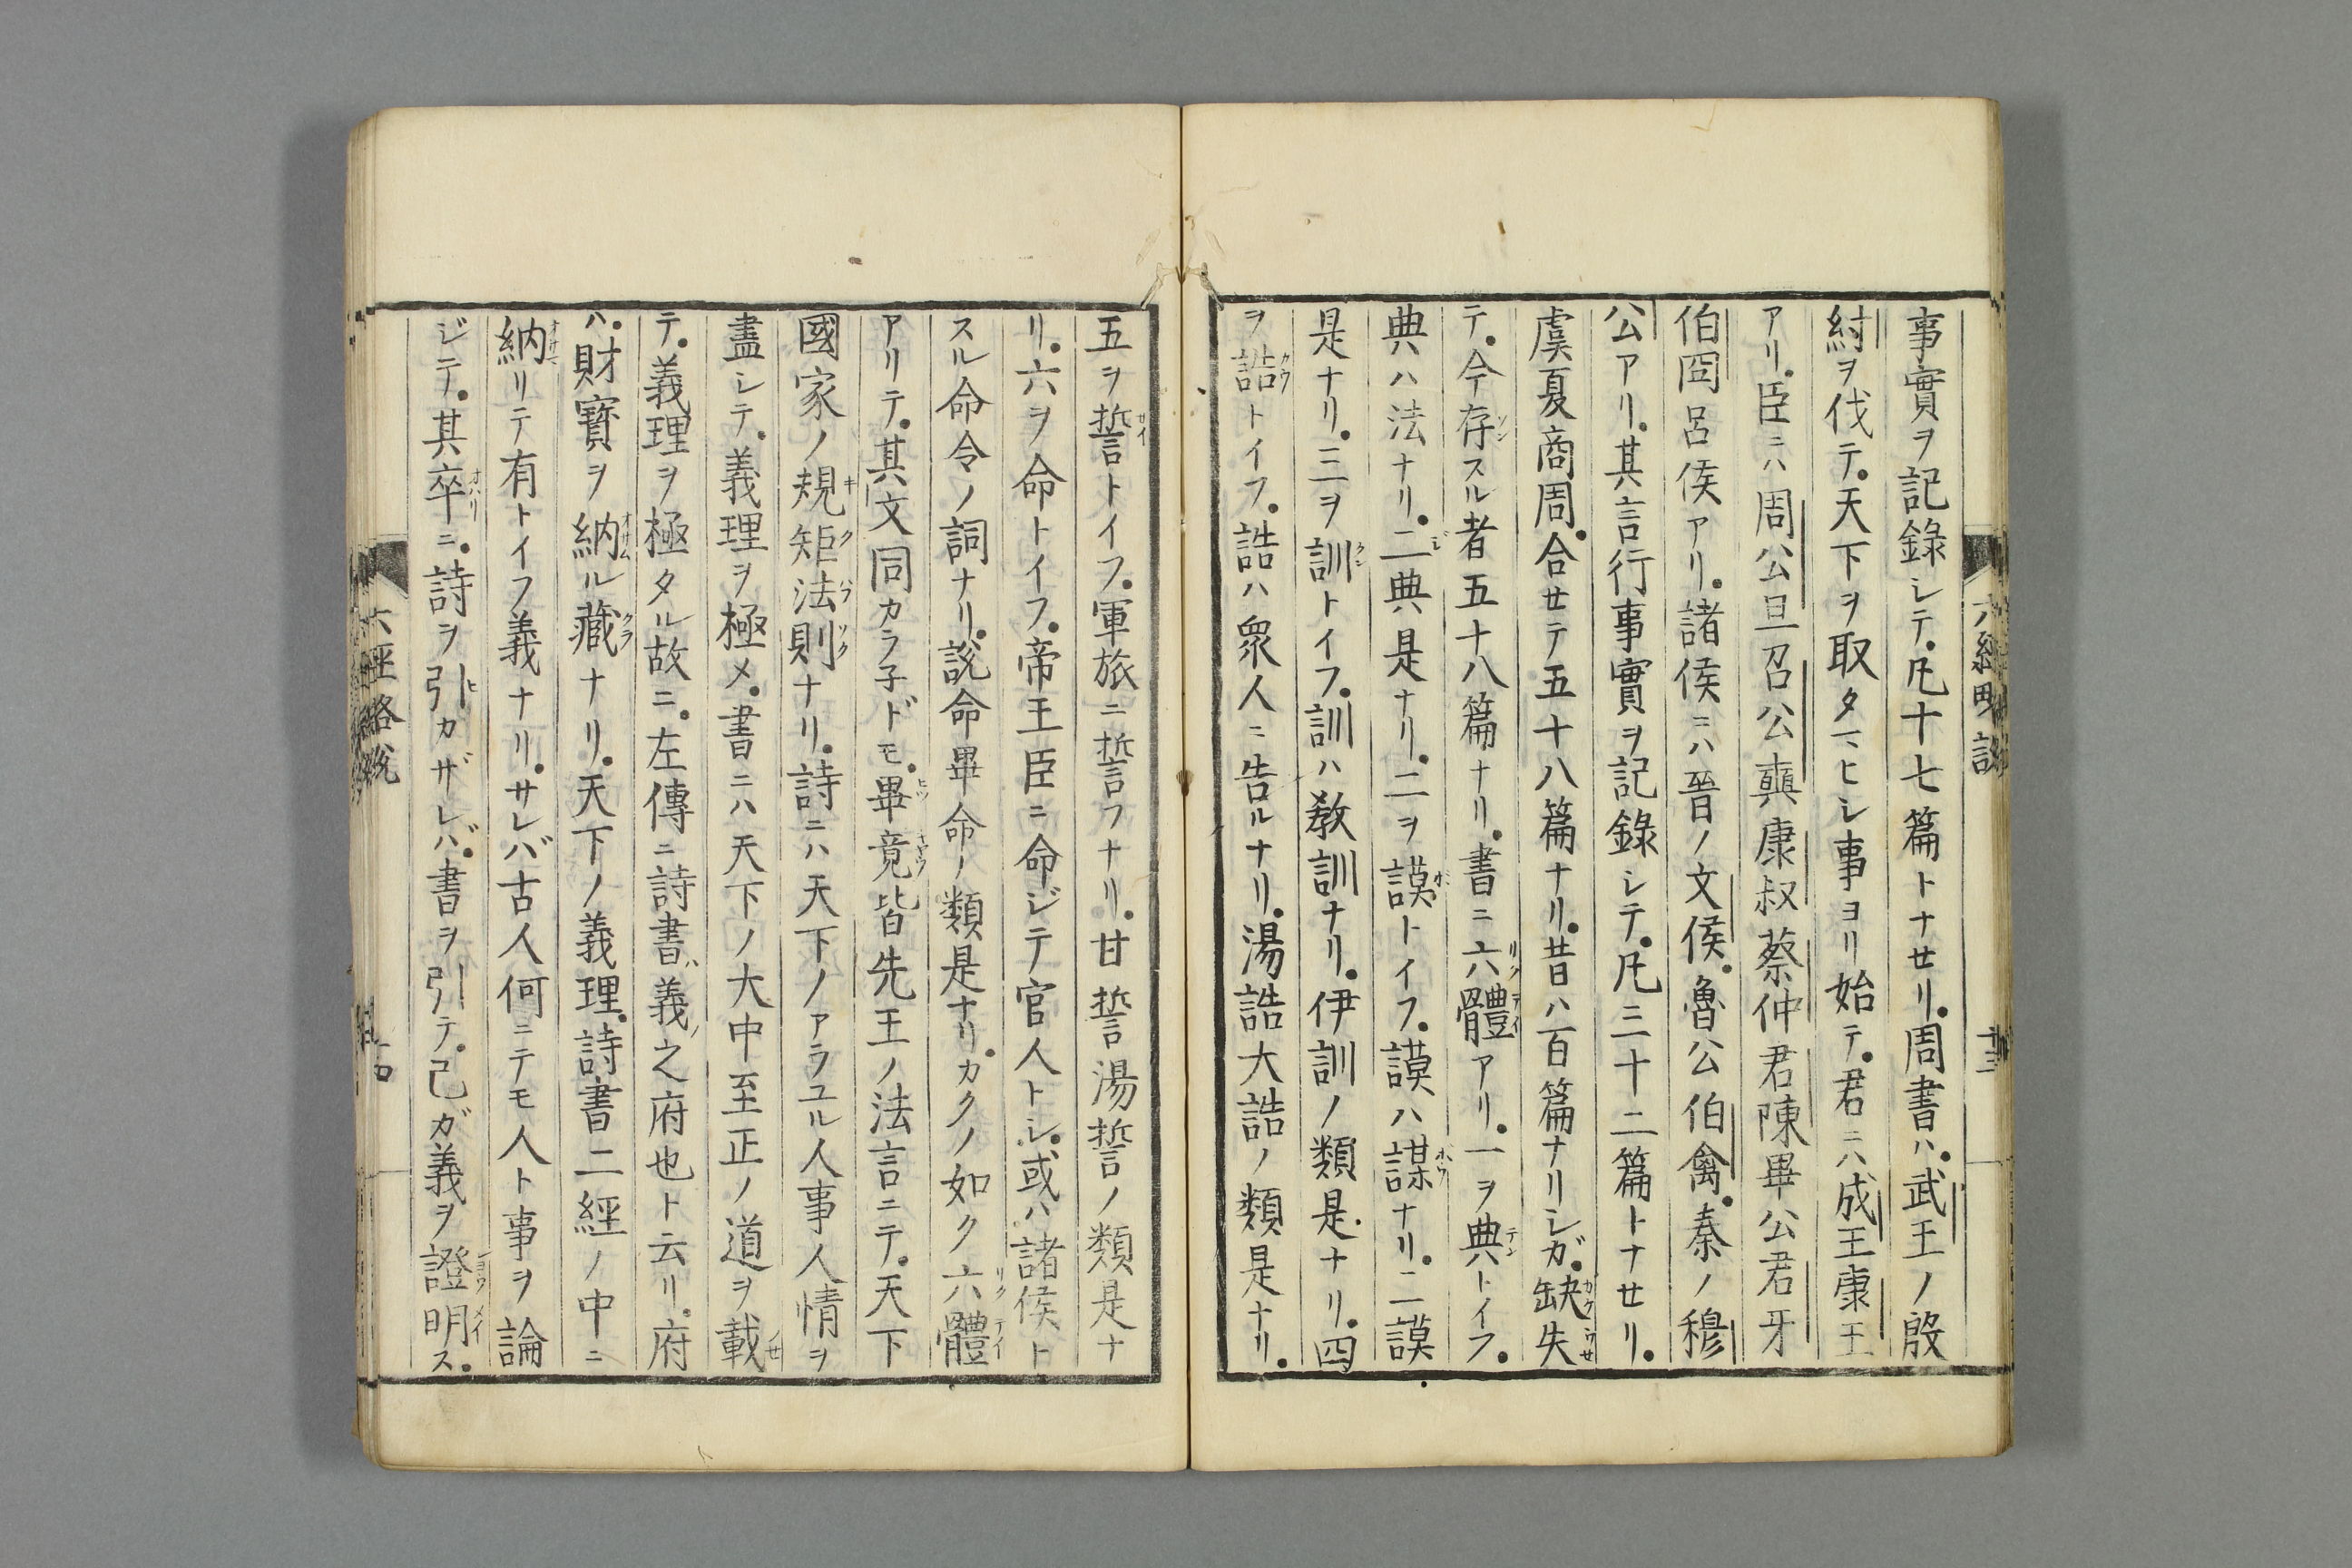 事實ヲ記錄シテ。凡十七篇トナセリ。周書ハ。武王ノ殷
紂ヲ伐テ。天下ヲ取タマヒシ事ヨリ始テ。君ニハ成王康王
アリ。臣ニハ周公旦召公奭康叔蔡仲君陳畢公君牙
伯冏呂侯アリ。諸侯ニハ晉ノ文侯。魯公伯禽。秦ノ穆
公アリ。其言行事實ヲ記錄シテ。凡三十二篇トナセリ。
虞夏商周。合セテ五十八篇ナリ。昔ハ百篇ナリシガ。缺失
テ。今存スル者五十八篇ナリ。書ニ六體アリ。一ヲ典トイフ。
典ハ法ナリ。二典是ナリ。二ヲ謨トイフ。謨ハ謀ナリ。二謨
是ナリ。三ヲ訓トイフ。訓ハ敎訓ナリ。伊訓ノ類是ナリ。四
ヲ誥トイフ。誥ハ衆人ニ告ルナリ。湯誥大誥ノ類是ナリ。
五ヲ誓トイフ。軍旅ニ誓フナリ。甘誓湯誓ノ類是ナ
リ。六ヲ命トイフ。帝王臣ニ命ジテ官人トシ。或ハ諸侯ト
スル命令ノ詞ナリ。說命畢命ノ類是ナリ。カクノ如ク六體
アリテ。其文同カラ子ドモ。畢竟皆先王ノ法言ニテ。天下
國家ノ規矩法則ナリ。詩ニハ天下ノアラユル人事人情ヲ
盡シテ。義理ヲ極メ。書ニハ天下ノ大中至正ノ道ヲ載
テ。義理ヲ極タル故ニ。左傳ニ詩書ハ義ノ之府也ト云リ。府
ハ。財寶ヲ納ル藏ナリ。天下ノ義理。詩書二經ノ中ニ
納リテ有トイフ義ナリ。サレバ古人何ニテモ人ト事ヲ論
ジテ。其卒ニ。詩ヲ引カザレバ。書ヲ引テ。己ガ義ヲ證明ス。
六經略說